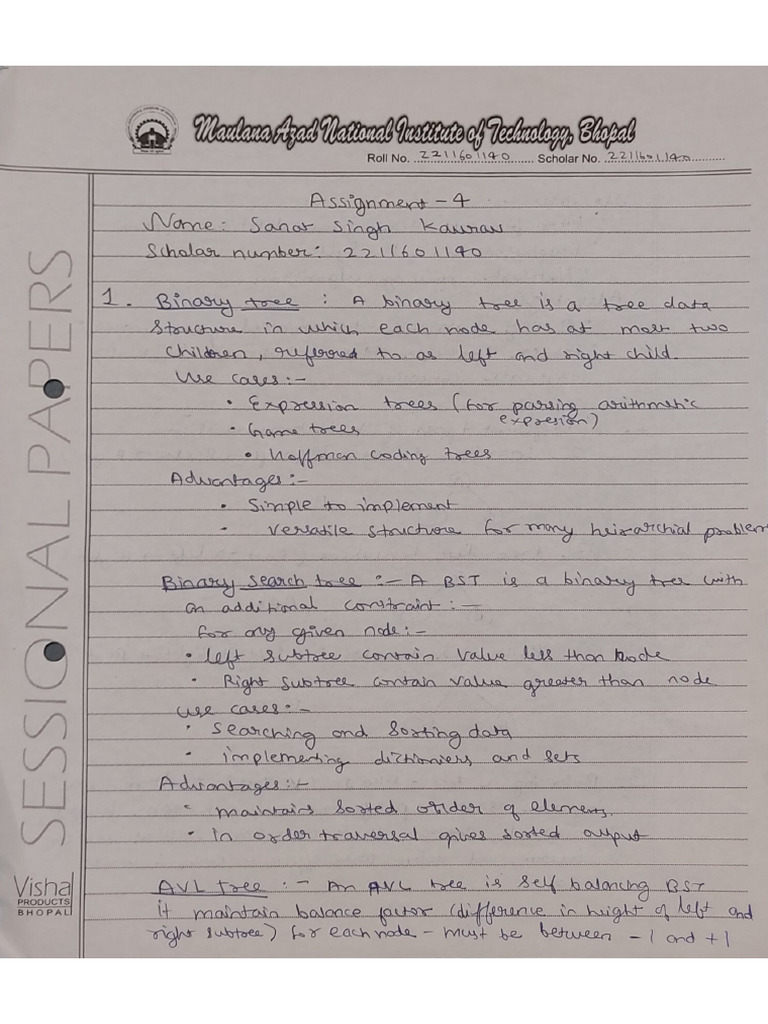 Maulana Azad National Institute of Technology, Bhopal
Roll No. 2211601140 Scholar No. 2211601140
Assignment - 4
Name: Sanat Singh Kaurav
Scholar number: 2211601140
1. Binary tree : A binary tree is a tree data
structure in which each node has at most two
children, referred to as left and right child.
Use cases:-
• Expression trees (for parsing arithmetic
expresion)
• Game trees
• Huffman coding trees
Advantages:-
• Simple to implement
- versatile structure for many heirarchial problem
Binary search tree :- A BST is a binary tree with
an additional constraint :-
for any given node:-
• left subtree contain value less than node
• Right subtree contain value greater than node
use cases:-
• searching and sorting data
• implementing dictioniers and sets
Advantages:-
• maintains sorted order of elements.
• in order traversal gives sorted output
AVL tree :- An AVL tree is self balancing BST
it maintain balance factor (difference in height of left and
right subtree) for each node - must be between -1 and +1
SESSIONAL PAPERS
Vishal
PRODUCTS
BHOPAL